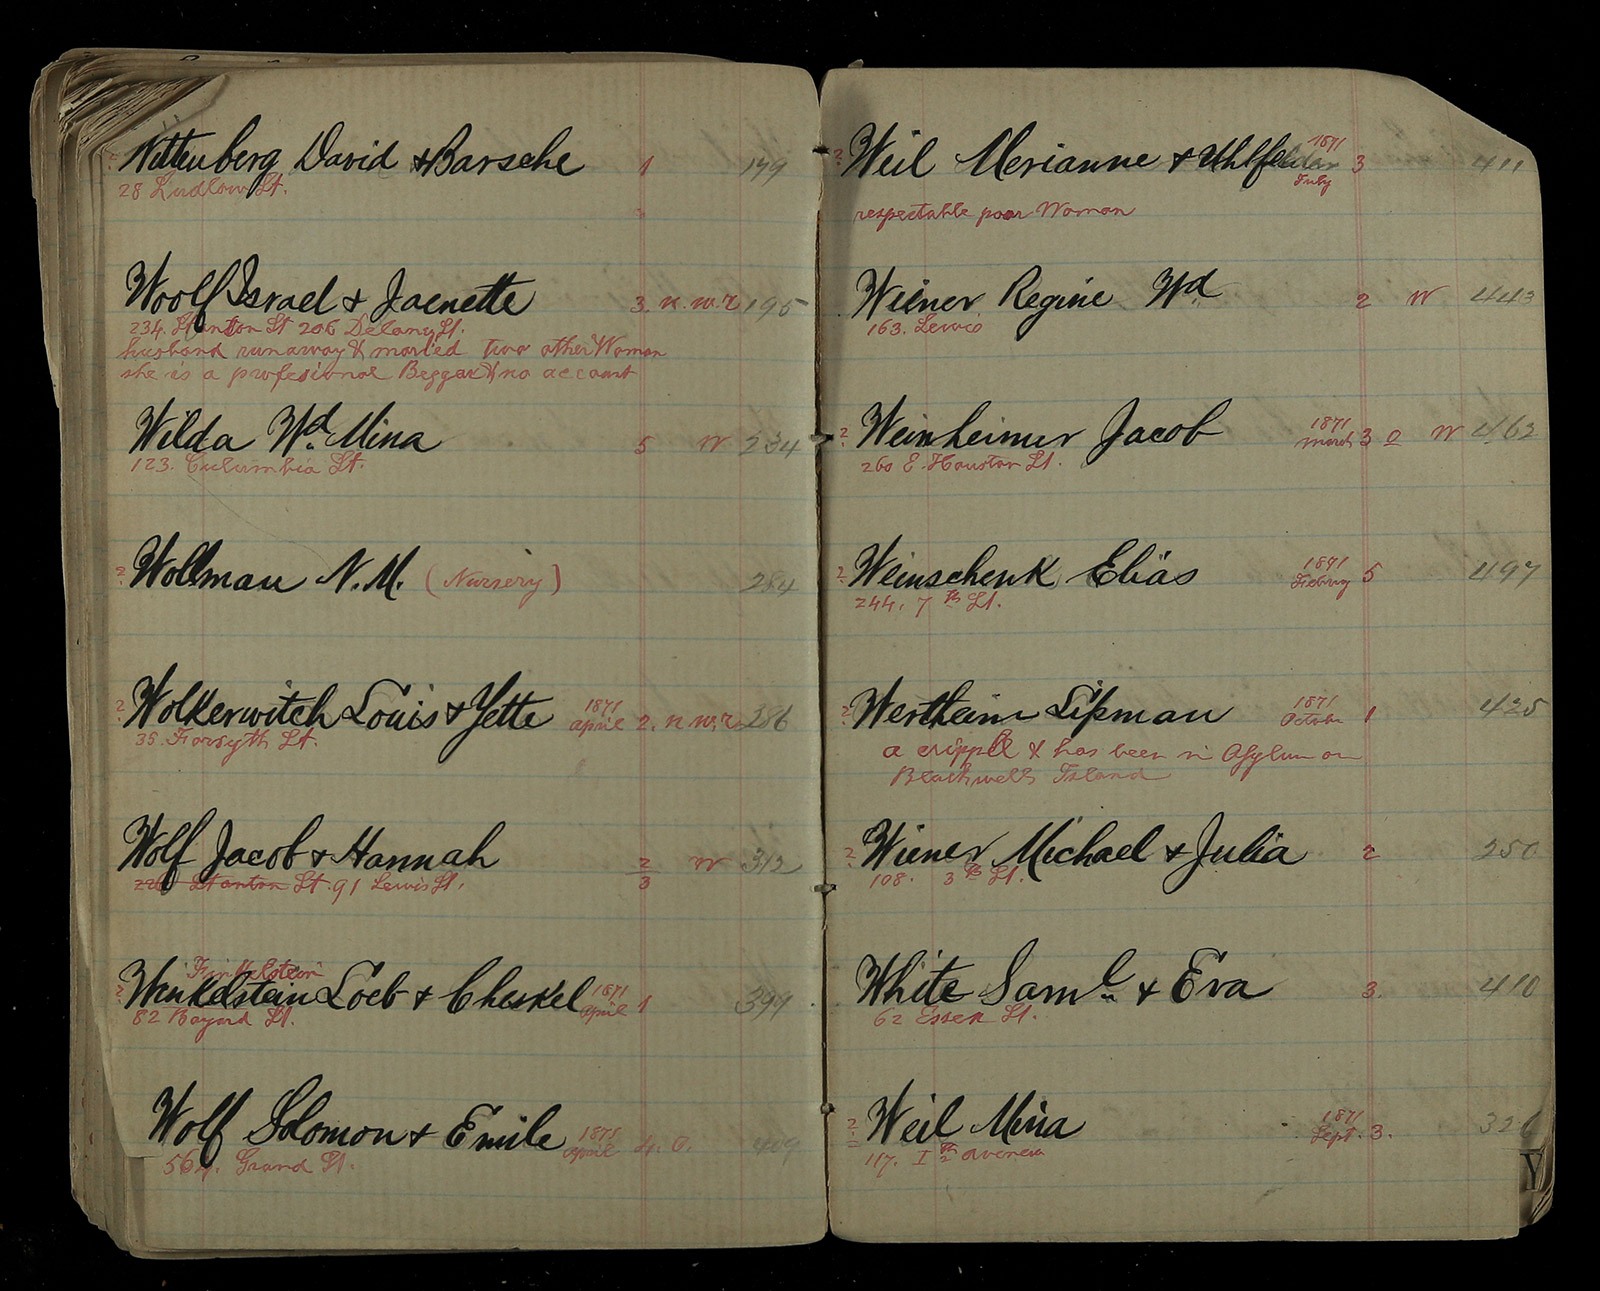 ? Wittenberg David & Barsche 1 149
28 Ludlow St.
Woolf Israel & Jaenette 3. n. w. r 195
234. Stanton St 206 Delancy St.
husband runaway & maried two other Woman
she is a profesional Beggar & no account
Wilda Wd. Mina 5 W 234
123. Culumbia St.
? Wollman N. M. (Nursery) 284
? Wolkerwitch Louis & Yette 1871 april 2. n w. r. 286
35. Forsyth St.
Wolf Jacob & Hannah 2 3 W 312
Stanton St. 91 Lewis St.
Finkelstein
? Winkelstein Loeb & Cheskel 1871 april 1 399
82 Bayard St.
Wolf Solomon & Emile 1871 april 4. O. 409
564. Grand St.
? Weil Merianne & Uhlfelder 1871 July 3 411
respectable poor Woman
Wiener Regine Wd 2 W 443
163. Lewis
? Weinheimer Jacob 1871 march 3 O W 462
260 E. Houston St.
? Weinschenk Elias 1871 Febury 5 497
244. 7th St.
? Wertheim Lipman 1871 October 1 425
a cripple & has been in Asylum on
Blackwells Island
? Wiener Michael & Julia 2 250
108. 3th St.
White Saml. & Eva 3. 410
62 Essex St.
? Weil Mina 1871 Sept. 3. 326
117. 1th avenew
Y